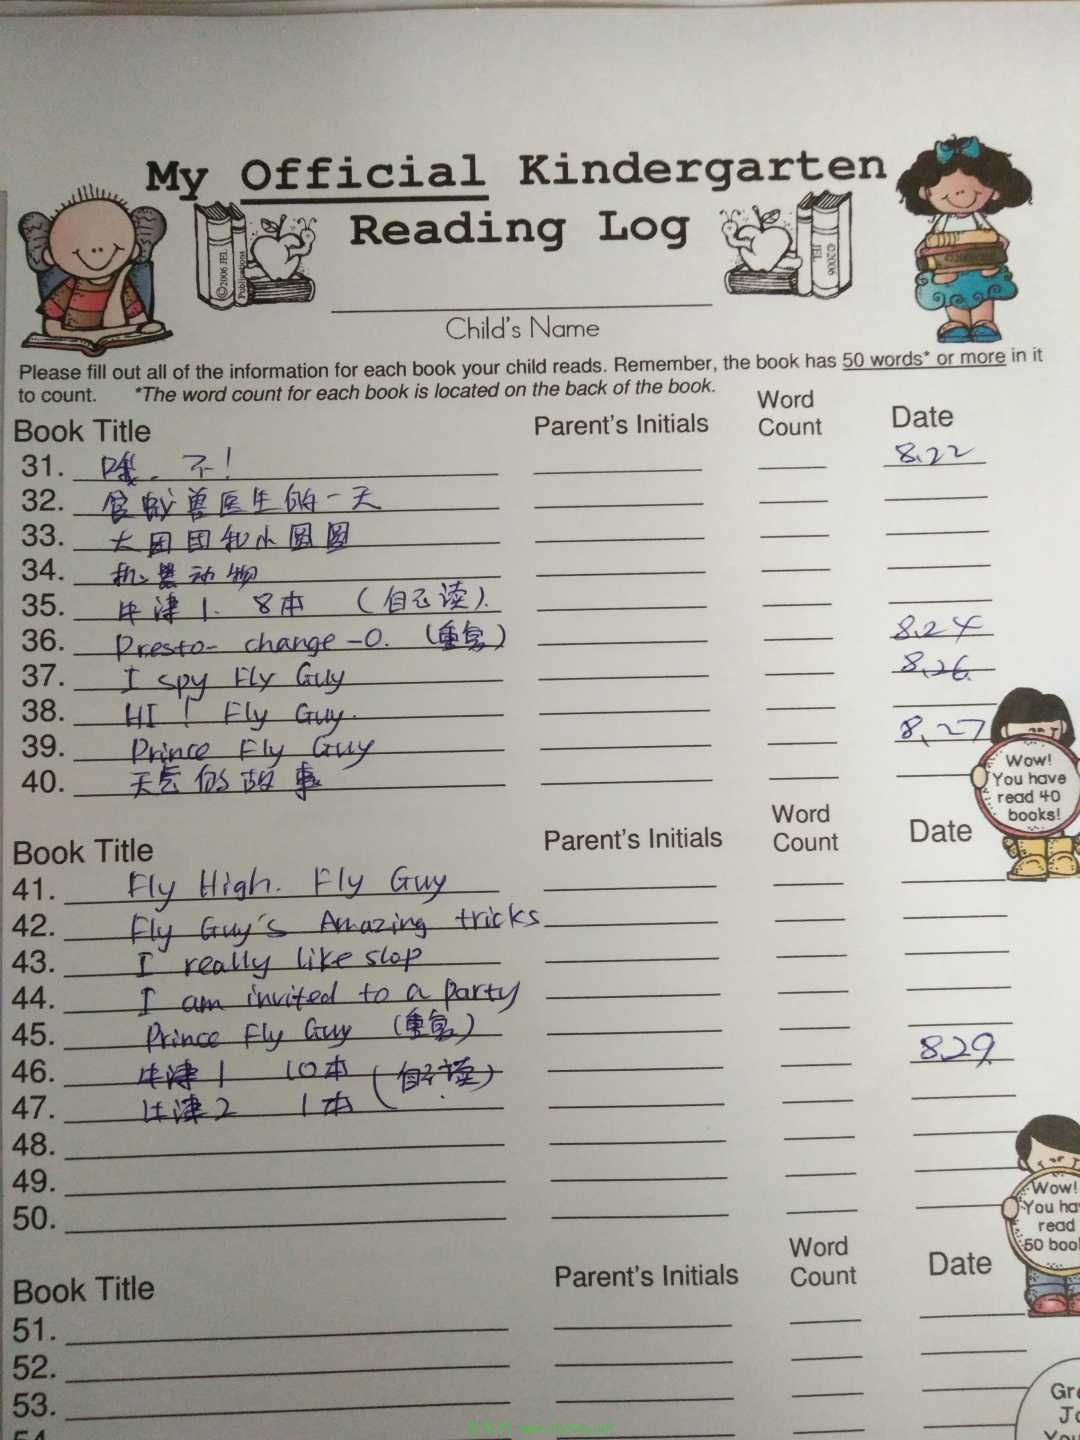 My Official Kindergarten
Reading Log
©2006 JEL
Publications
©2006
JEL
Child's Name
Please fill out all of the information for each book your child reads. Remember, the book has 50 words* or more in it
to count. *The word count for each book is located on the back of the book.
Book Title Parent's Initials Word Count Date
31. 哦.不! 8.22
32. 食蚁兽医生的一天
33. 大团团和小圆圆
34. 机器动物
35. 牛津1. 8本 (自己读).
36. Presto- change-O. (重复) 8.24
37. I spy Fly Guy 8.26.
38. HI! Fly Guy.
39. Prince Fly Guy 8.27
40. 天气的故事
Wow!
You have
read 40
books!
Book Title Parent's Initials Word Count Date
41. Fly High. Fly Guy
42. Fly Guy's Amazing tricks
43. I really like slop
44. I am invited to a party
45. Prince Fly Guy (重复)
46. 牛津1 10本 (自己读) 8.29.
47. 牛津2 1本
48.
49.
50.
Wow!
You ha
read
50 boo
Book Title Parent's Initials Word Count Date
51.
52.
53.
54
Gre
Jo
You